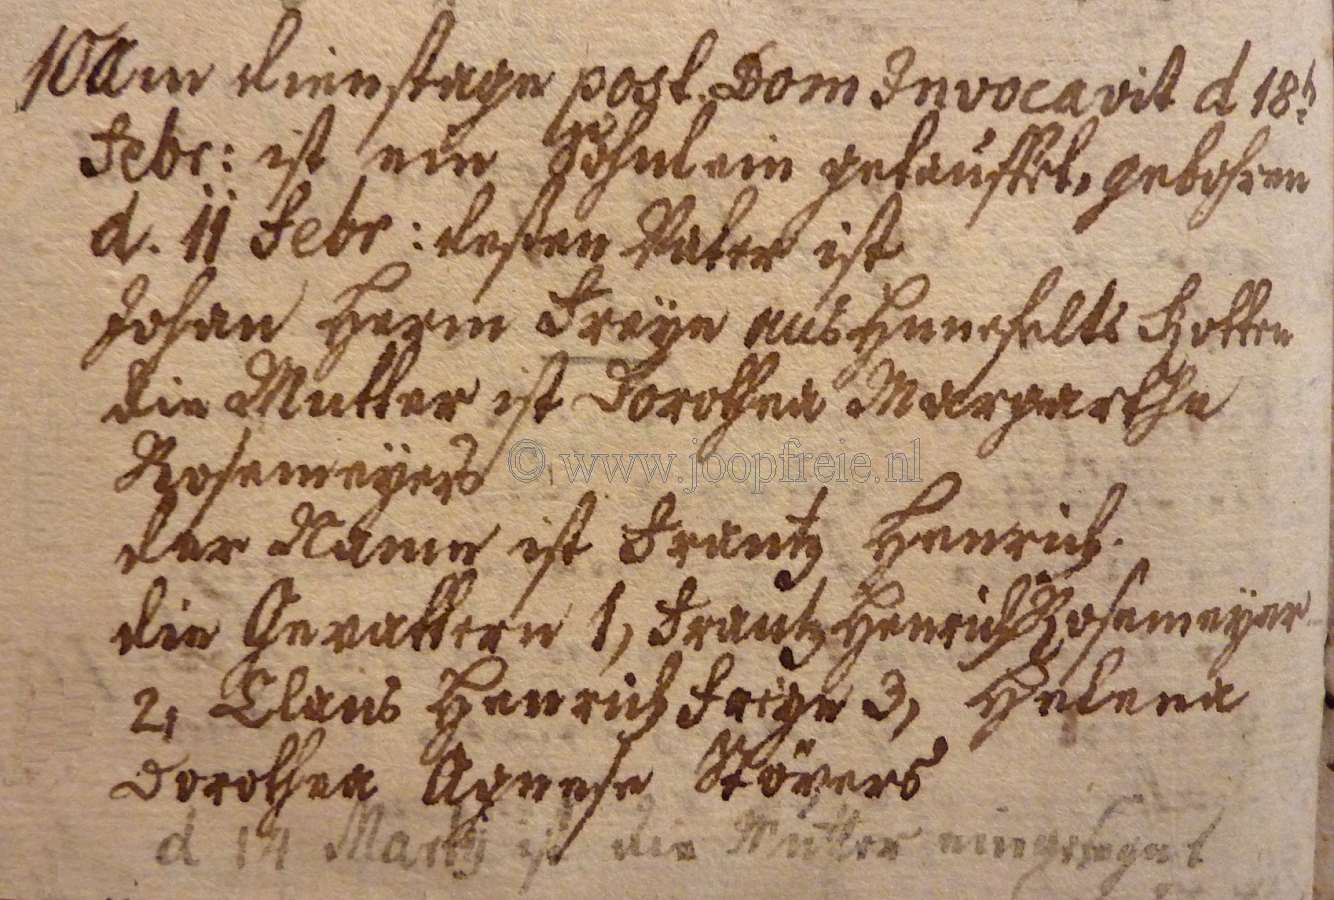 10 Am dienstage post. Dom Invocavit d 18t
Febr: ist ein Söhnlein getauffet, gebohren
d. 11 Febr: deßen Vater ist
Johan Herm Freÿe aus Hunefelts Kotten
die Mutter ist Dorothea Margarethe
Rosemeÿers
der Name ist Frantz Henrich.
die Gevattern 1, Frantz Henrich Rosemeÿer
2, Claus Henrich Freÿe 3, Helena
Dorothea Agnese Stövers
d 14 Martij ist die Mutter eingesegnet
© www.joopfreie.nl